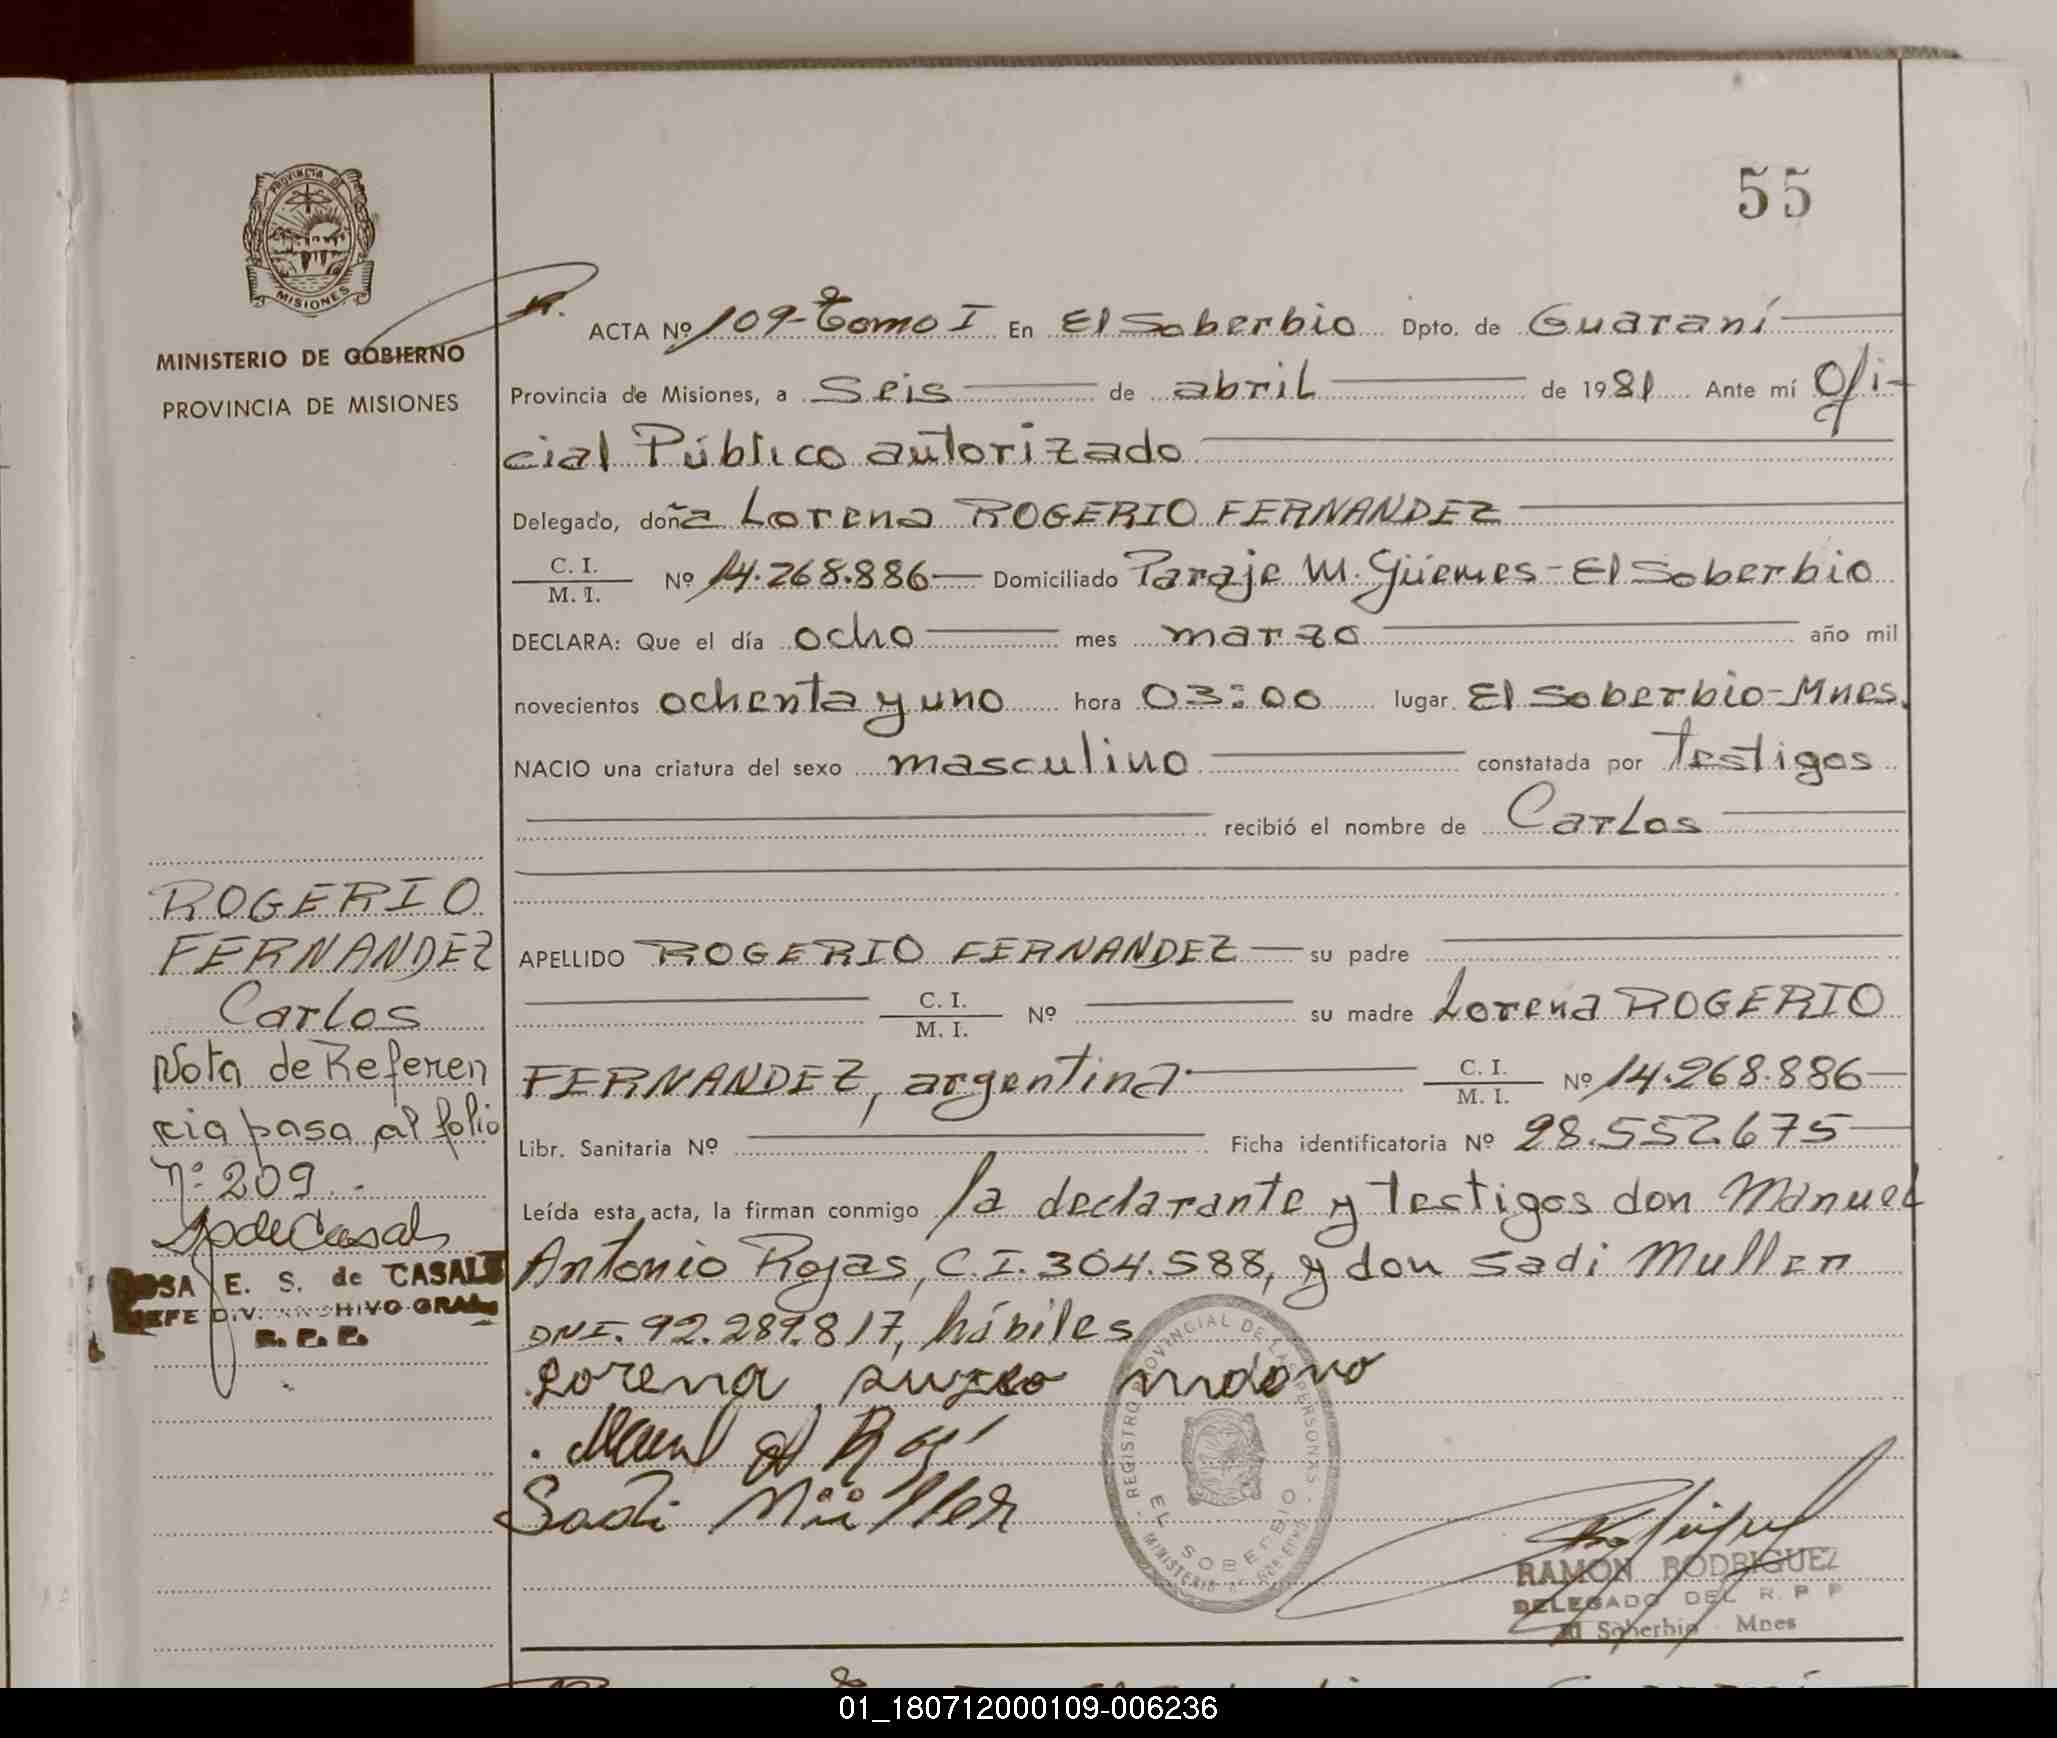 55
PROVINCIA DE
MISIONES
MINISTERIO DE GOBIERNO
PROVINCIA DE MISIONES
ACTA Nº 109-Tomo I En El Soberbio Dpto. de Guaraní
Provincia de Misiones, a Seis de abril de 1981 Ante mí Ofi-
cial Público autorizado
Delegado, doña Lorena ROGERIO FERNANDEZ
C. I.
M. I. Nº 14.268.886 Domiciliado Paraje M. Güemes - El Soberbio
DECLARA: Que el día ocho mes marzo año mil
novecientos ochenta y uno hora 03:00 lugar El Soberbio-Mnes.
NACIO una criatura del sexo masculino constatada por testigos
recibió el nombre de Carlos
APELLIDO ROGERIO FERNANDEZ su padre
C. I.
M. I. Nº su madre Lorena ROGERIO
FERNANDEZ, argentina C. I.
M. I. Nº 14.268.886
Libr. Sanitaria Nº Ficha identificatoria Nº 28.552.675
Leída esta acta, la firman conmigo la declarante y testigos don Manuel
Antonio Rojas, C.I. 304.588, y don Sadi Muller
DNI. 92.289.817, hábiles
Lorena
Sadi Müller
ROGERIO
FERNANDEZ
Carlos
Nota de Referen
cia pasa al folio
Nº 209.-
ROSA E. S. de CASALS
JEFE DIV. ARCHIVO GRAL
R. P. P.
REGISTRO PROVINCIAL DE LAS PERSONAS
EL SOBERBIO
MINISTERIO DE GOBIERNO
RAMON RODRIGUEZ
DELEGADO DEL R. P P
El Soberbio Mnes
01_180712000109-006236